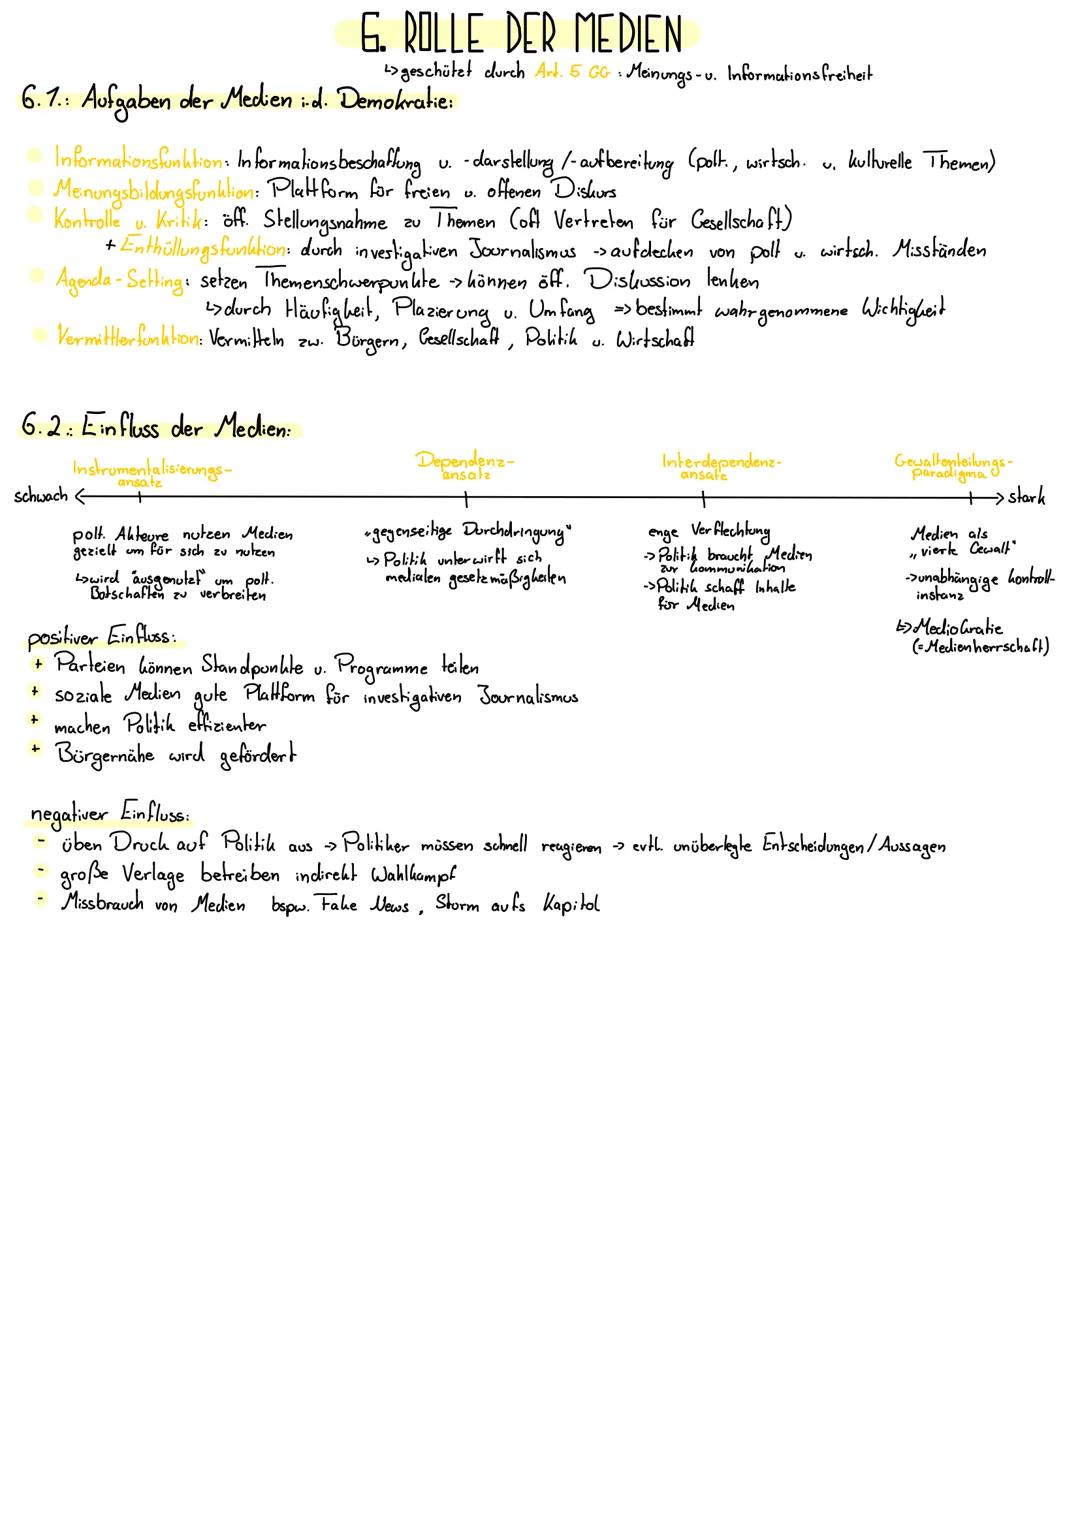 6. ROLLE DER MEDIEN
↳ geschützt durch Art. 5 GG : Meinungs- u. Informationsfreiheit
6.1.: Aufgaben der Medien i.d. Demokratie:
Informationsfunktion: Informationsbeschaffung u. -darstellung /-aufbereitung (polt., wirtsch. u. kulturelle Themen)
Meinungsbildungsfunktion: Plattform für freien u. offenen Diskurs
Kontrolle u. Kritik: öff. Stellungsnahme zu Themen (oft Vertreten für Gesellschaft)
+ Enthüllungsfunktion: durch investigativen Journalismus -> aufdecken von polt u. wirtsch. Misständen
Agenda-Setting: setzen Themenschwerpunkte -> können öff. Diskussion lenken
↳ durch Häufigkeit, Plazierung u. Umfang => bestimmt wahrgenommene Wichtigkeit
Vermittlerfunktion: Vermitteln zw. Bürgern, Gesellschaft, Politik u. Wirtschaft
6.2.: Einfluss der Medien:
Instrumentalisierungs-
ansatz
Dependenz-
ansatz
Interdependenz-
ansatz
Gewaltenteilungs-
paradigma
schwach
stark
polt. Akteure nutzen Medien
gezielt um für sich zu nutzen
↳ wird "ausgenutzt" um polt.
Botschaften zu verbreiten
„gegenseitige Durchdringung"
↳ Politik unterwirft sich
medialen gesetzmäßigkeiten
enge Verflechtung
-> Politik braucht Medien
zur kommunikation
-> Politik schaff Inhalte
für Medien
Medien als
„vierte Gewalt"
-> unabhängige kontroll-
instanz
↳ Mediokratie
(= Medienherrschaft)
positiver Einfluss:
+ Parteien können Standpunkte u. Programme teilen
+ soziale Medien gute Plattform für investigativen Journalismus
+ machen Politik effizienter
+ Bürgernähe wird gefördert
negativer Einfluss:
- üben Druck auf Politik aus -> Politiker müssen schnell reagieren -> evtl. unüberlegte Entscheidungen/Aussagen
- große Verlage betreiben indirekt Wahlkampf
- Missbrauch von Medien bspw. Fake News, Sturm aufs Kapitol